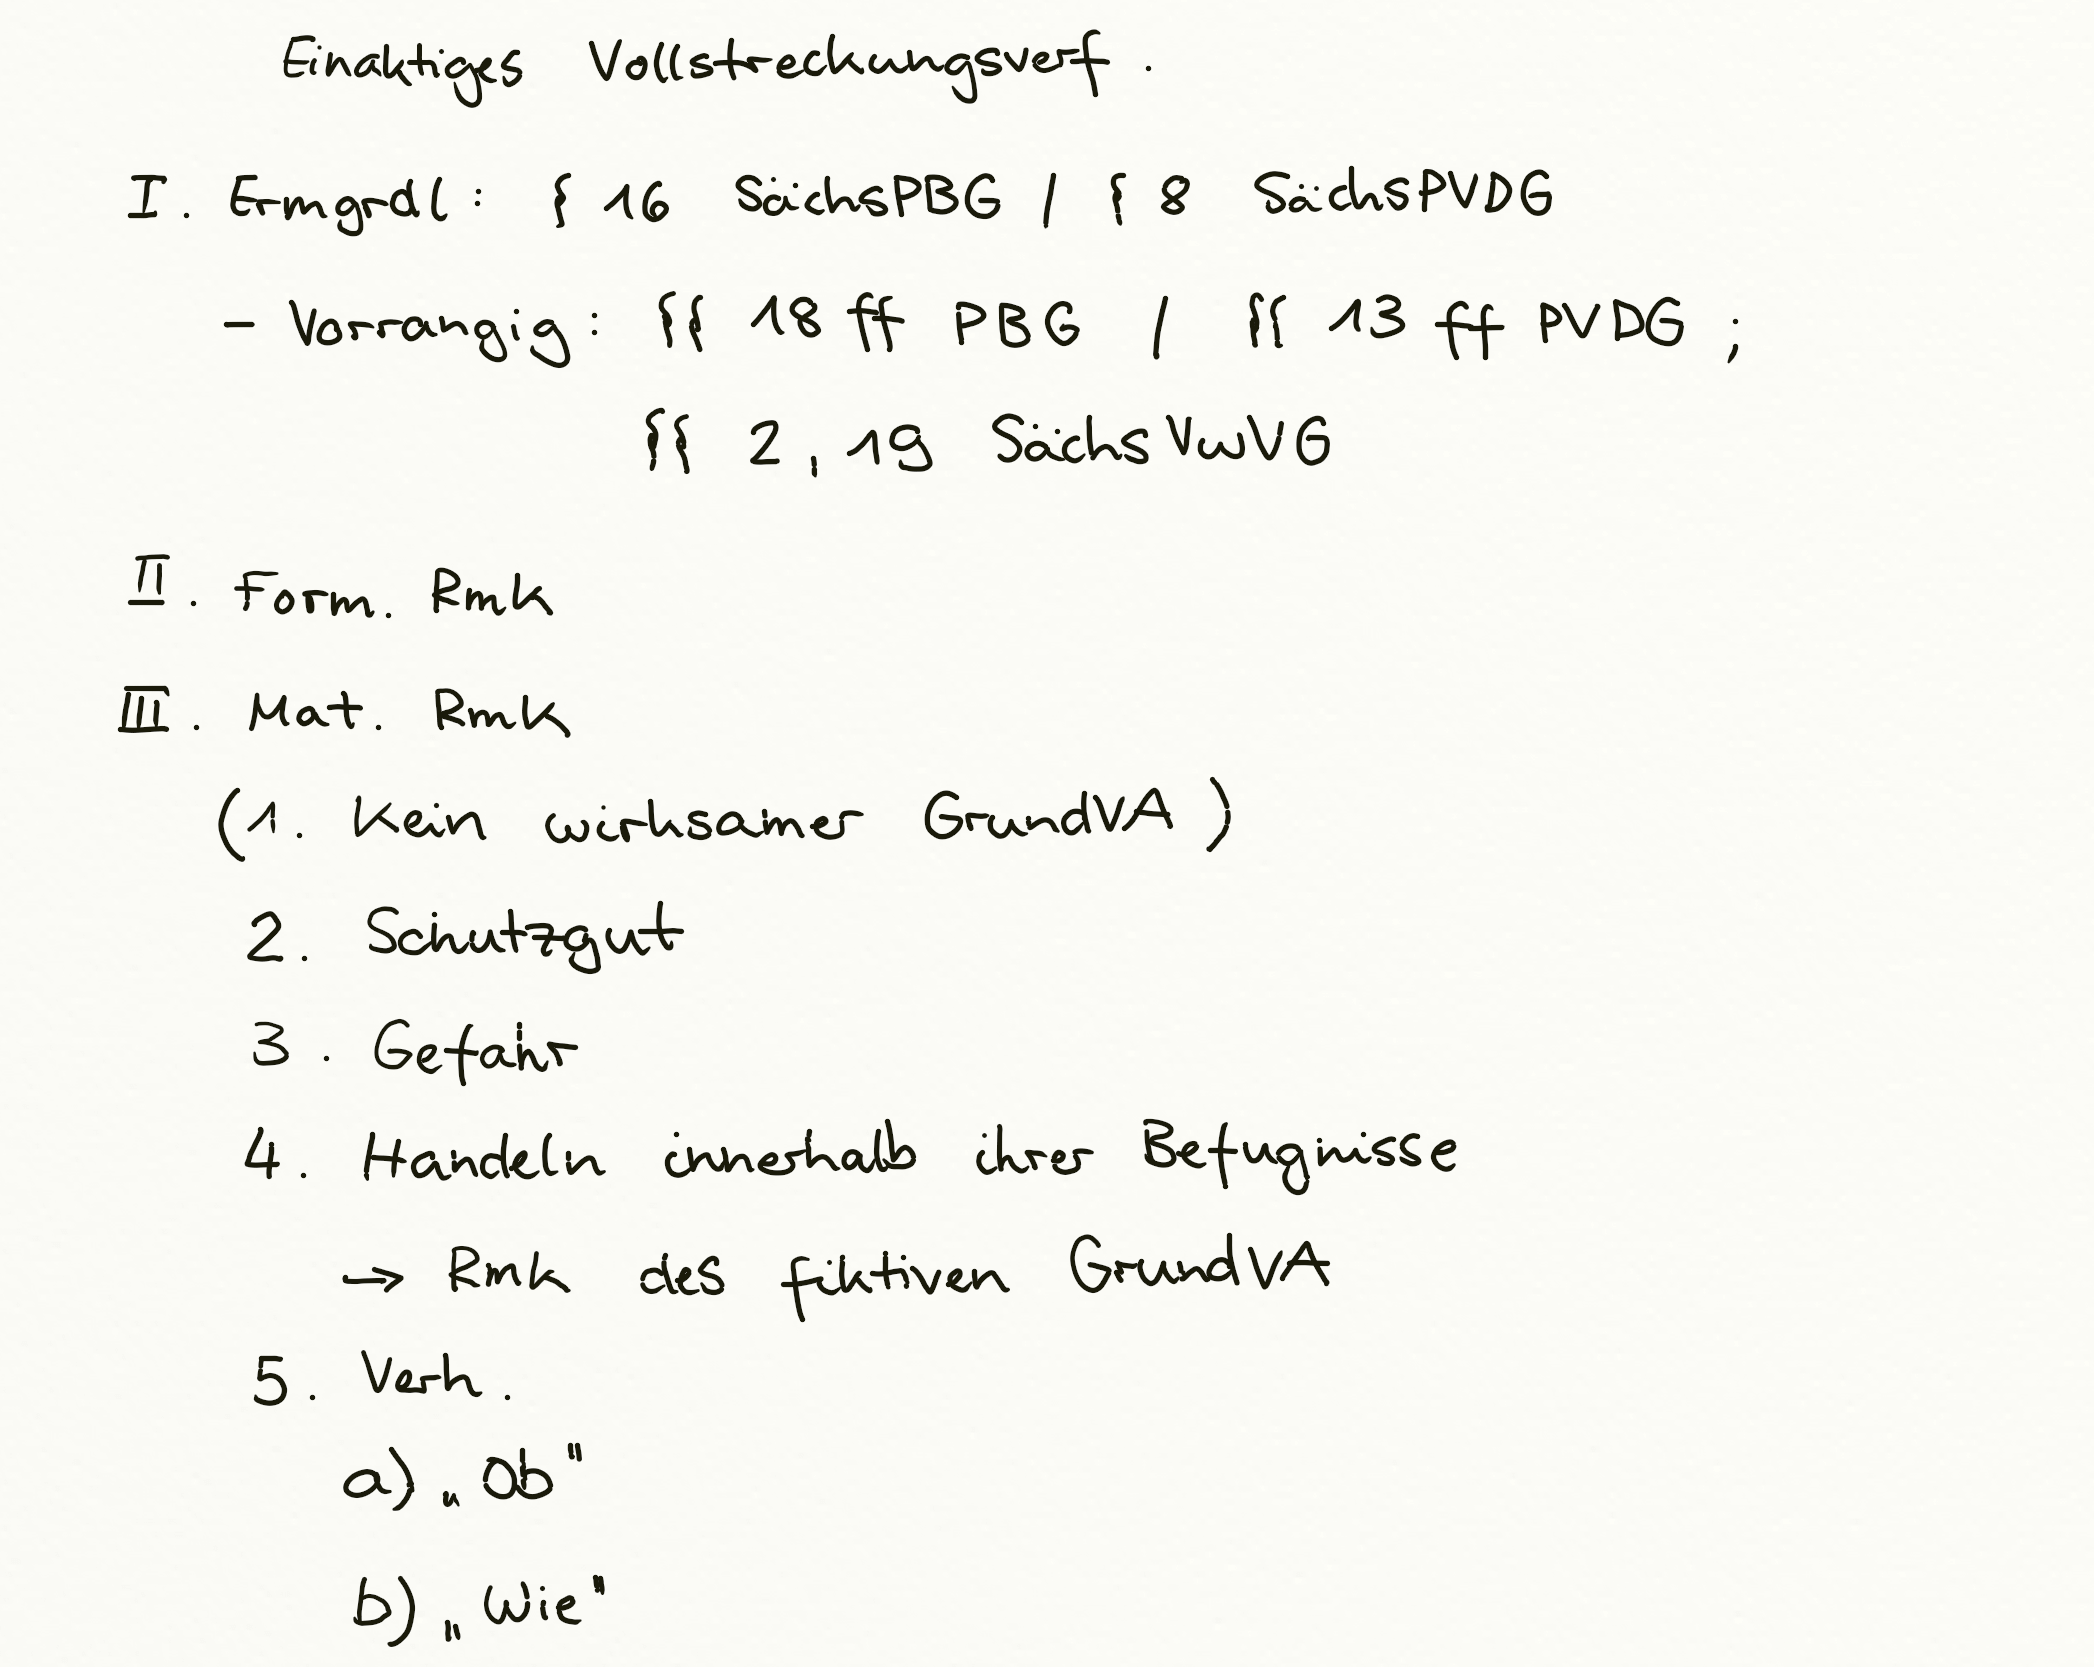 Einaktiges Vollstreckungsverf.
I. Ermgrdl: § 16 SächsPBG / § 8 SächsPVDG
- Vorrangig: §§ 18 ff PBG / §§ 13 ff PVDG ;
§§ 2, 19 SächsVwVG
II. Form. Rmk
III. Mat. Rmk
(1. Kein wirksamer GrundVA)
2. Schutzgut
3. Gefahr
4. Handeln innerhalb ihrer Befugnisse
→ Rmk des fiktiven GrundVA
5. Verh.
a) „Ob"
b) „Wie"